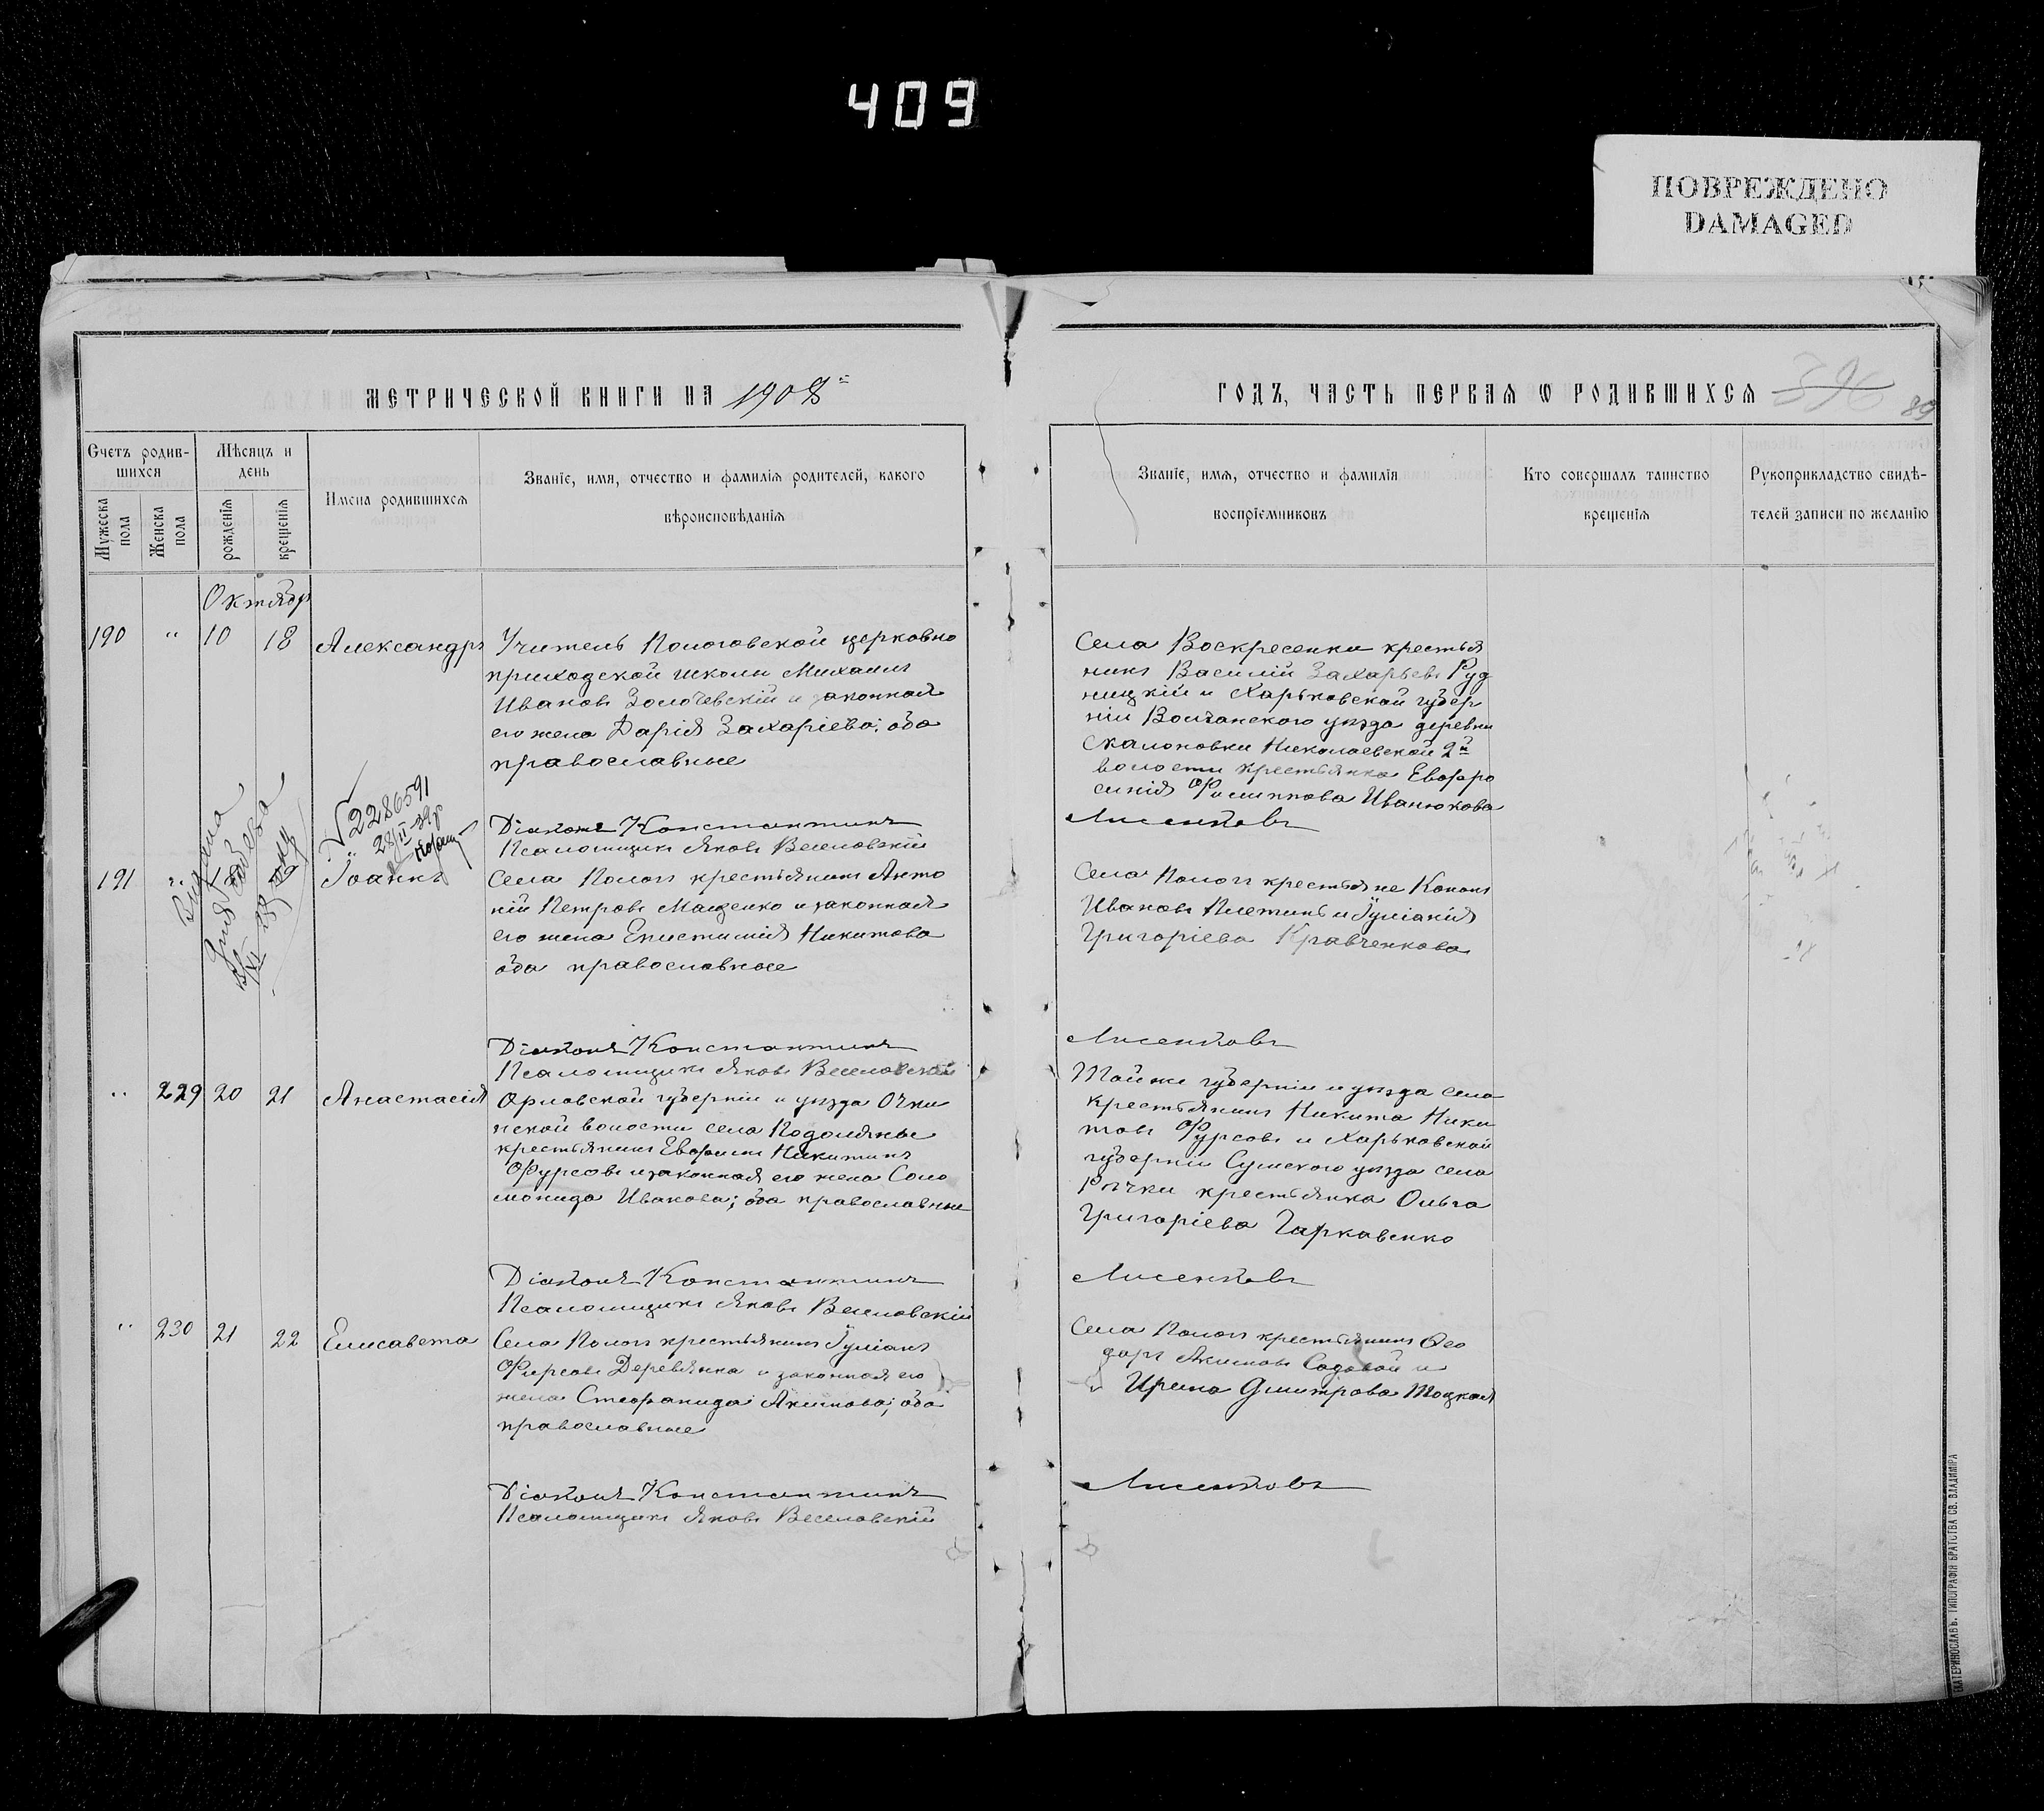 409
ПОВРЕЖДЕНО
DAMAGED
МЕТРИЧЕСКОЙ КНИГИ НА 1908й
ГОДЪ, ЧАСТЬ ПЕРВАЯ Ѡ РОДИВШИХСЯ
396
89
Счетъ родив-
шихся
Мужеска
пола
Женска
пола
Мѣсяцъ и
день
рожденія
крещенія
Имена родившихся
Званіе, имя, отчество и фамилія родителей, какого
вѣроисповѣданія
Званіе, имя, отчество и фамилія
воспріемниковъ
Кто совершалъ таинство
крещенія
Рукоприкладство свидѣ-
телей записи по желанію
Октябрь
190 " 10 18 Александръ
Учитель Пологовской церковно
приходской школы Михаилъ
Ивановъ Золочевскій и законная
его жена Дарія Захаріева; оба
православные
Села Воскресенки крестья
нинъ Василій Захарьевъ Руд
ницкій и Харьковской губер
ніи Волчанскаго уѣзда деревни
Скалоновки Николаевской 2й
волости крестьянка Евфро
синія Филиппова Иванюкова
Діаконъ Константинъ Лисенковъ
Псаломщикъ Яковъ Веселовскій
2286591
28/II-39р
191 " Іоаннъ
Села Пологъ крестьянинъ Анто
ній Петровъ Мащенко и законная
его жена Епистимія Никитова
оба православные
Села Пологъ крестьяне Кононъ
Ивановъ Плетинь и Іуліанія
Григоріева Кравченкова
Діаконъ Константинъ Лисенковъ
Псаломщикъ Яковъ Веселовскій
" 229 20 21 Анастасія
Орловской губерніи и уѣзда Очки
нской волости села Подоляные
крестьянинъ Евфимъ Никитинъ
Фурсовъ и законная его жена Соло
монида Иванова; оба православные
Той же губерніи и уѣзда села
крестьянинъ Никита Ники
товъ Фурсовъ и Харьковской
губерніи Сумскаго уѣзда села
Рѣчки крестьянка Ольга
Григоріева Гаркавенко
Діаконъ Константинъ Лисенковъ
Псаломщикъ Яковъ Веселовскій
" 230 21 22 Елисавета
Села Пологъ крестьянинъ Іуліанъ
Фирсовъ Деревянка и законная его
жена Стефанида Якимова; оба
православные
Села Пологъ крестьянинъ Ѳео
доръ Якимовъ Садовой и
Ирина Дмитрова Тоцкая
Діаконъ Константинъ Лисенковъ
Псаломщикъ Яковъ Веселовскій
ЕКАТЕРИНОСЛАВЪ. ТИПОГРАФІЯ БРАТСТВА СВ. ВЛАДИМІРА